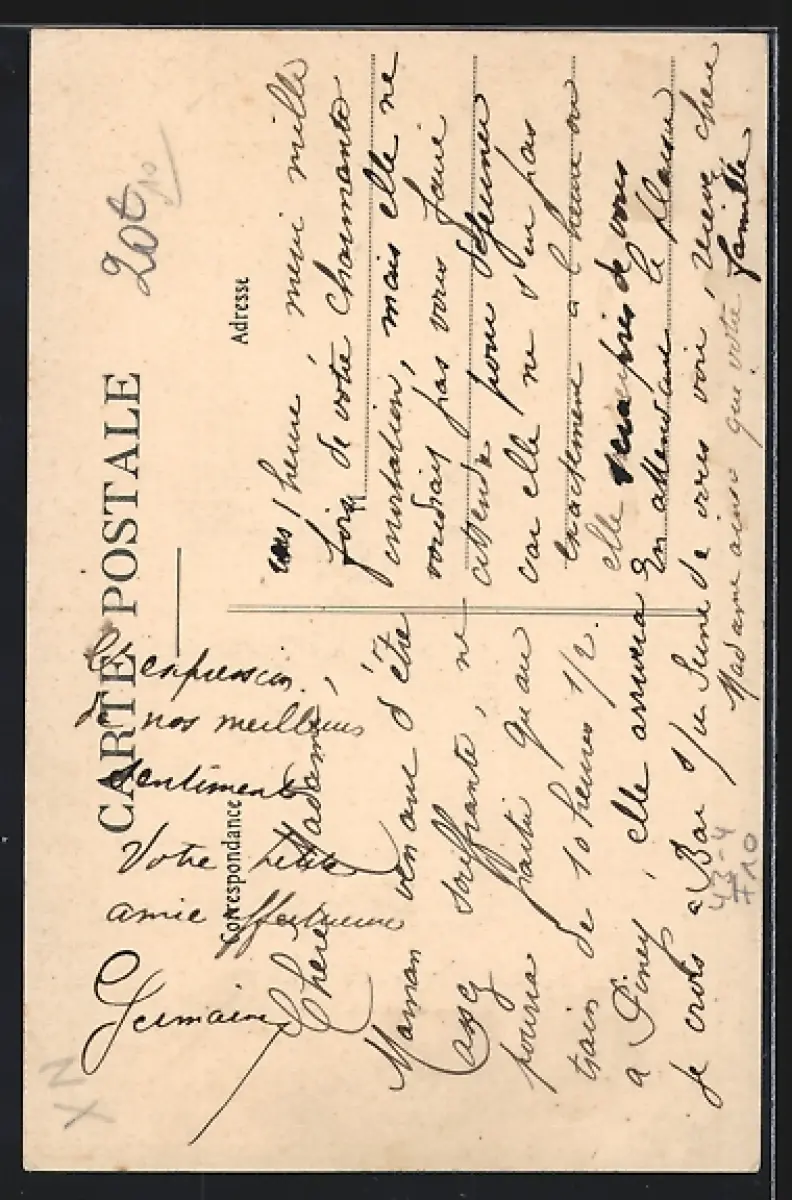 CARTE POSTALE
Correspondance
Adresse
Chère Madame,
Maman venant d'être
assez souffrante, ne
pourra partir qu'au
train de 10 heures 1/2.
a Piney, elle arrivera
je crois a Bar s/ Seine
1 heure, merci mille
fois de votre charmante
invitation, mais elle ne
voudrais pas vous faire
attendre pour déjeuner
car elle ne sai pas
exactement a l'heure ou
elle sera près de vous
En attendant le plaisir
de vous voir, recevez chère
Madame ainsi que votre famille
l'expression
de nos meilleurs
sentiments
Votre petite
amie affectueuse
Germaine
20t
43-4
710
XN